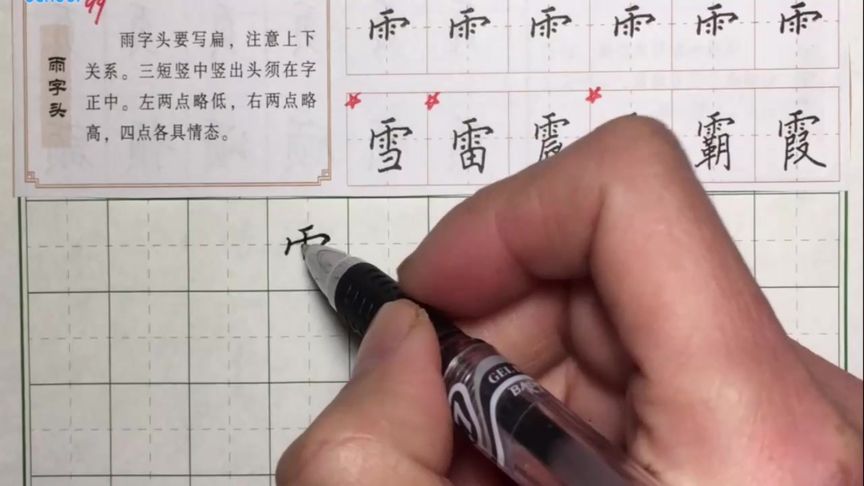 雨字头
雨字头要写扁，注意上下
关系。三短竖中竖出头须在字
正中。左两点略低，右两点略
高，四点各具情态。
⻗ ⻗ ⻗ ⻗ ⻗ ⻗
雪 雷 震 霸 霞
⻗
GEL